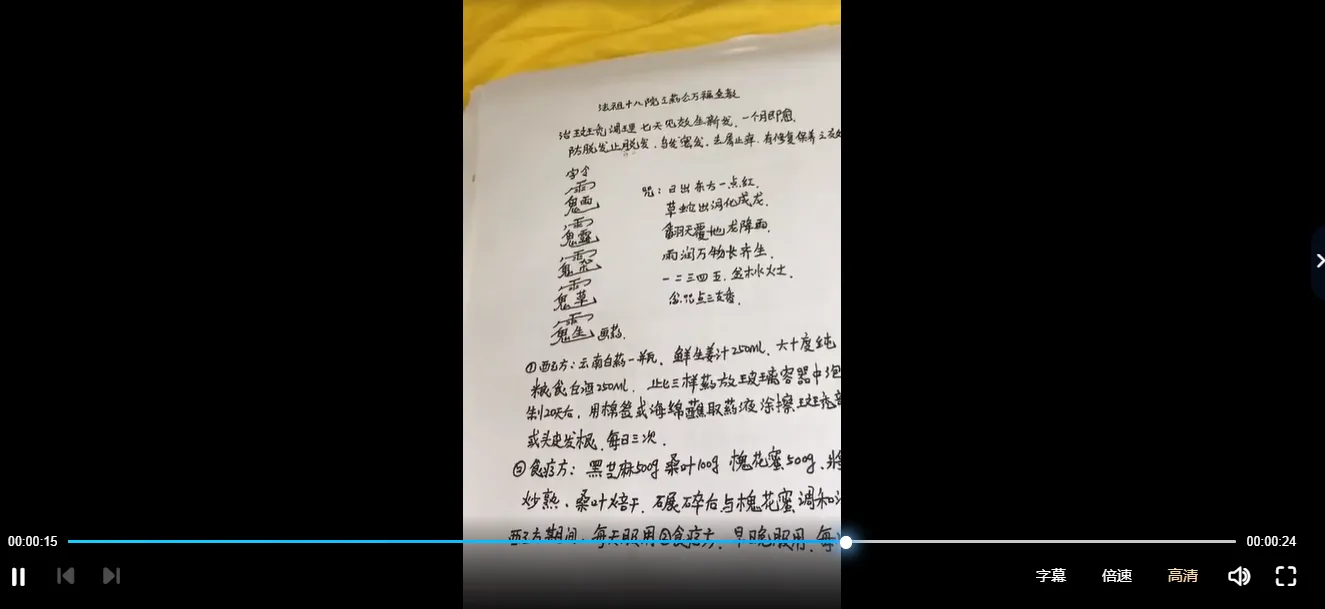 治斑秃调理七天见效生新发，一个月即愈，
防脱发止脱发，乌发密发，去屑止痒，有修复保养之
字令
咒：日出东方一点红，
草蛇出洞化成龙，
翻天覆地龙降雨，
雨润万物长齐生，
一二三四五，金木水火土，
念咒点三支香，
画药。
①配方：云南白药一瓶，鲜生姜汁250ml，六十度纯
粮食白酒250ml，此三样药放玻璃容器中泡
制20天后，用棉签或海绵蘸取药液涂擦斑秃
或头皮发根，每日三次。
②食疗方：黑芝麻500g 桑叶100g 槐花蜜500g，将
炒熟，桑叶焙干，碾碎后与槐花蜜调和
方期间，每天服用②食疗方，早晚服用，每
00:00:15
00:00:24
字幕 倍速 高清